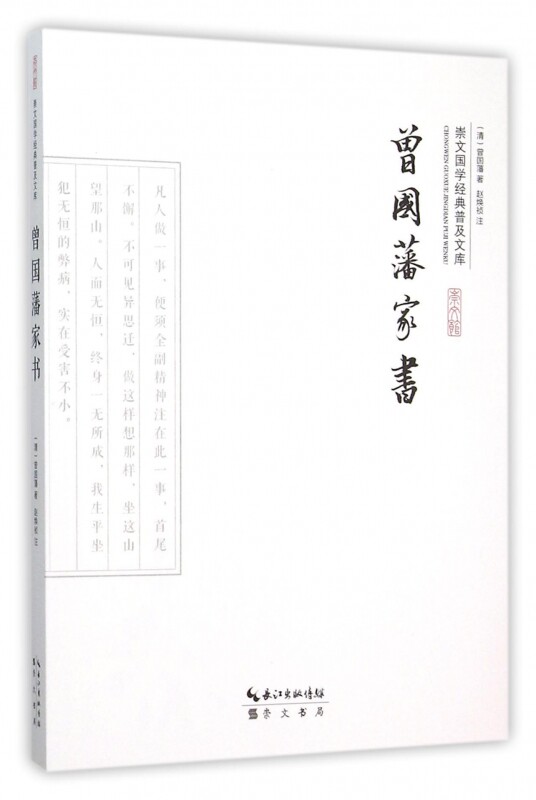 崇文国学经典普及文库
曾国藩家书
（清）曾国藩 著 赵焕祯 注
长江出版传媒
崇文书局
（清）曾国藩 著 赵焕祯 注
崇文国学经典普及文库
CHONGWEN GUOXUE JINGDIAN PUJI WENKU
曾國藩家書
崇文館
凡人做一事，便须全副精神注在此一事，首尾
不懈。不可见异思迁，做这样想那样，坐这山
望那山。人而无恒，终身一无所成，我生平坐
犯无恒的弊病，实在受害不小。
长江出版传媒
崇文书局